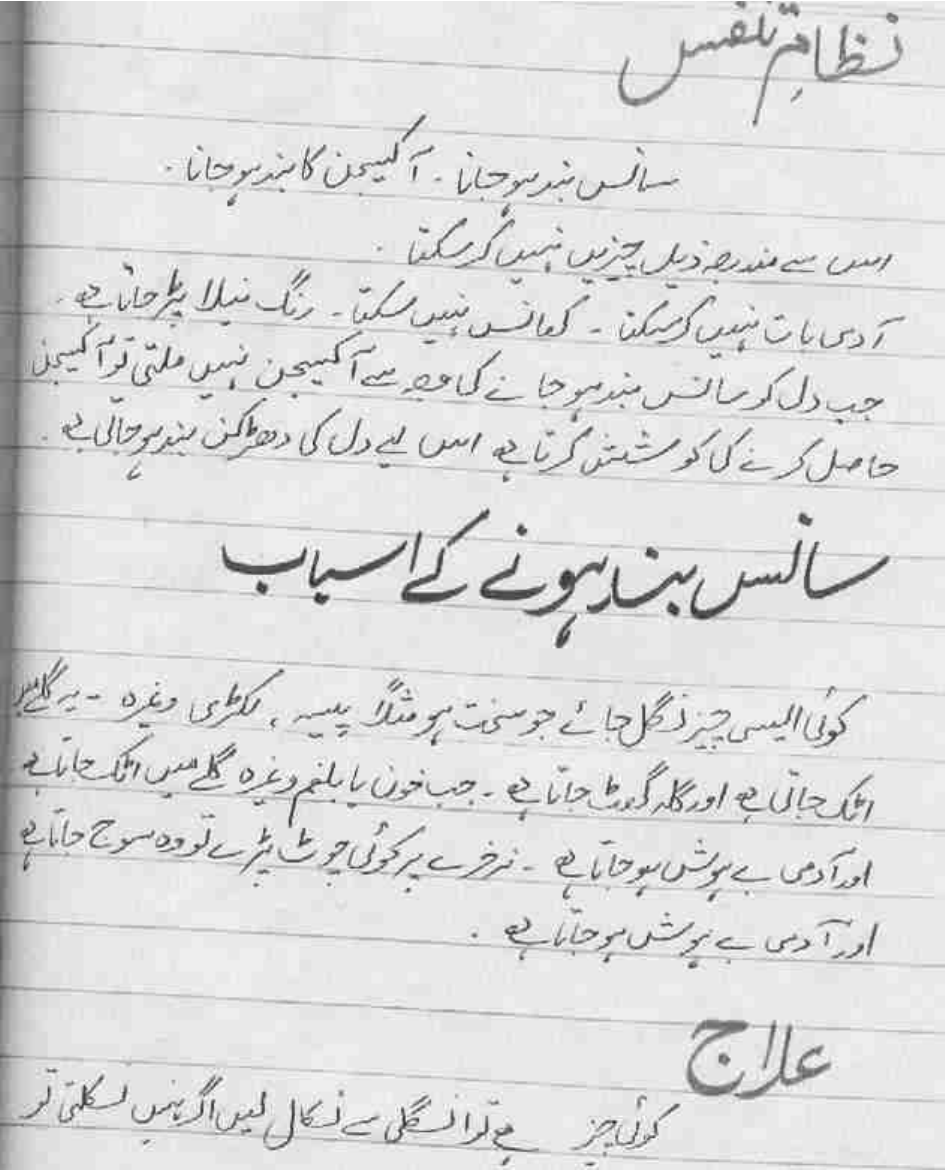 نظامِ تنفس
سانس بند ہو جانا ۔ آکسیجن کا بند ہو جانا ۔
اس سے مندرجہ ذیل چیزیں نہیں کر سکتا ۔
آدمی بات نہیں کر سکتا ۔ کھانس نہیں سکتا ۔ رنگ نیلا پڑ جاتا ہے ۔
جب دل کو سانس بند ہو جانے کی وجہ سے آکسیجن نہیں ملتی تو آکسیجن
حاصل کرنے کی کوشش کرتا ہے اس لیے دل کی دھڑکن بند ہو جاتی ہے ۔
سانس بند ہونے کے اسباب
کوئی ایسی چیز نگل جائے جو سخت ہو مثلاً پیسہ ، لکڑی وغیرہ ۔ یہ گلے میں
اٹک جاتی ہے اور گلہ گھوٹ جاتا ہے ۔ جب خون یا بلغم وغیرہ گلے میں اٹک جاتا ہے
اور آدمی بے ہوش ہو جاتا ہے ۔ نرخرے پر کوئی چوٹ پڑے تو وہ سوج جاتا ہے
اور آدمی بے ہوش ہو جاتا ہے ۔
علاج
کوئی چیز ہے تو انگلی سے نکال لیں اگر نہیں نکلتی تو